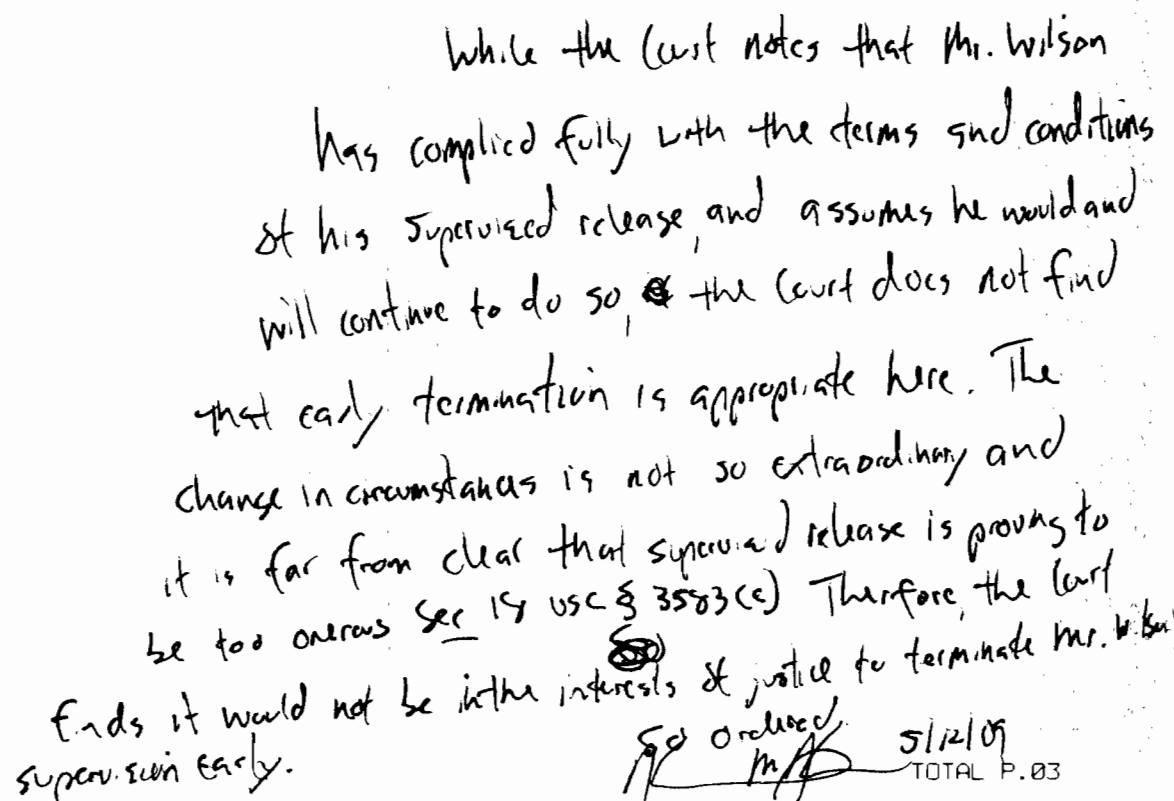 While the Court notes that Mr. Wilson
has complied fully with the terms and conditions
of his supervised release, and assumes he would and
will continue to do so, the Court does not find
that early termination is appropriate here. The
change in circumstances is not so extraordinary and
it is far from clear that supervised release is proving to
be too onerous See 18 USC § 3583(e) Therefore, the Court
finds it would not be in the interests of justice to terminate Mr. Wilson's
supervision early.
So ordered.
5/12/09
TOTAL P.03